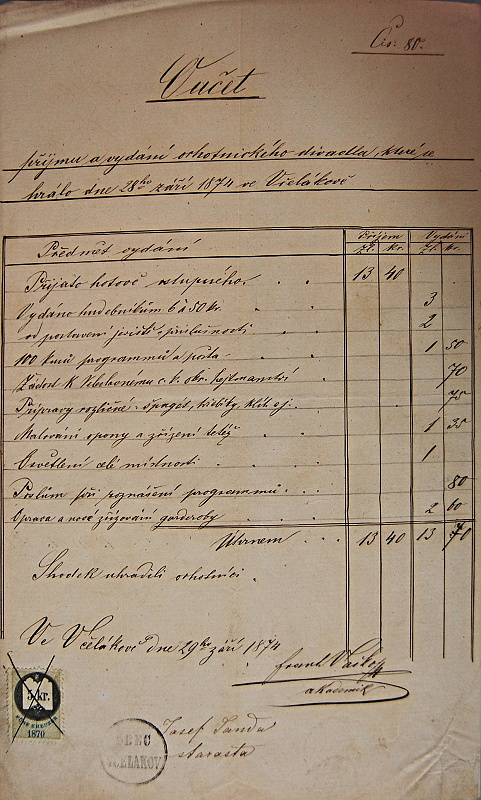 Čís: 80.
Oučet
příjmu a vydání ochotnického divadla, které se
hrálo dne 28ho září 1874 ve Včelákově
Příjem Vydán
Předmět vydání zl. kr. zl. kr.
Přijato hotově vstupného 13 40
Vydáno hudebníkům 6 à 50 kr. 3
od postavení jeviště a příslušnosti 2
100 kusů programmů a pošta 1 50
Žádost k c. k. okr. hejtmanství 70
Přípravy rozličné: špagát, hřebíky, klíh a j. 75
Malování opony a zřízení též 1 35
Osvětlení celé místnosti 1
Poslům při roznášení programmů 80
Oprava a nové zřizování garderoby 2 60
Úhrnem 13 40 13 70
Schodek uhradili ochotníci.
Ve Včelákově dne 29ho září 1874
Frant.
akademik
5 kr.
1870
OBEC
VČELAKOV
Josef Janda
starosta